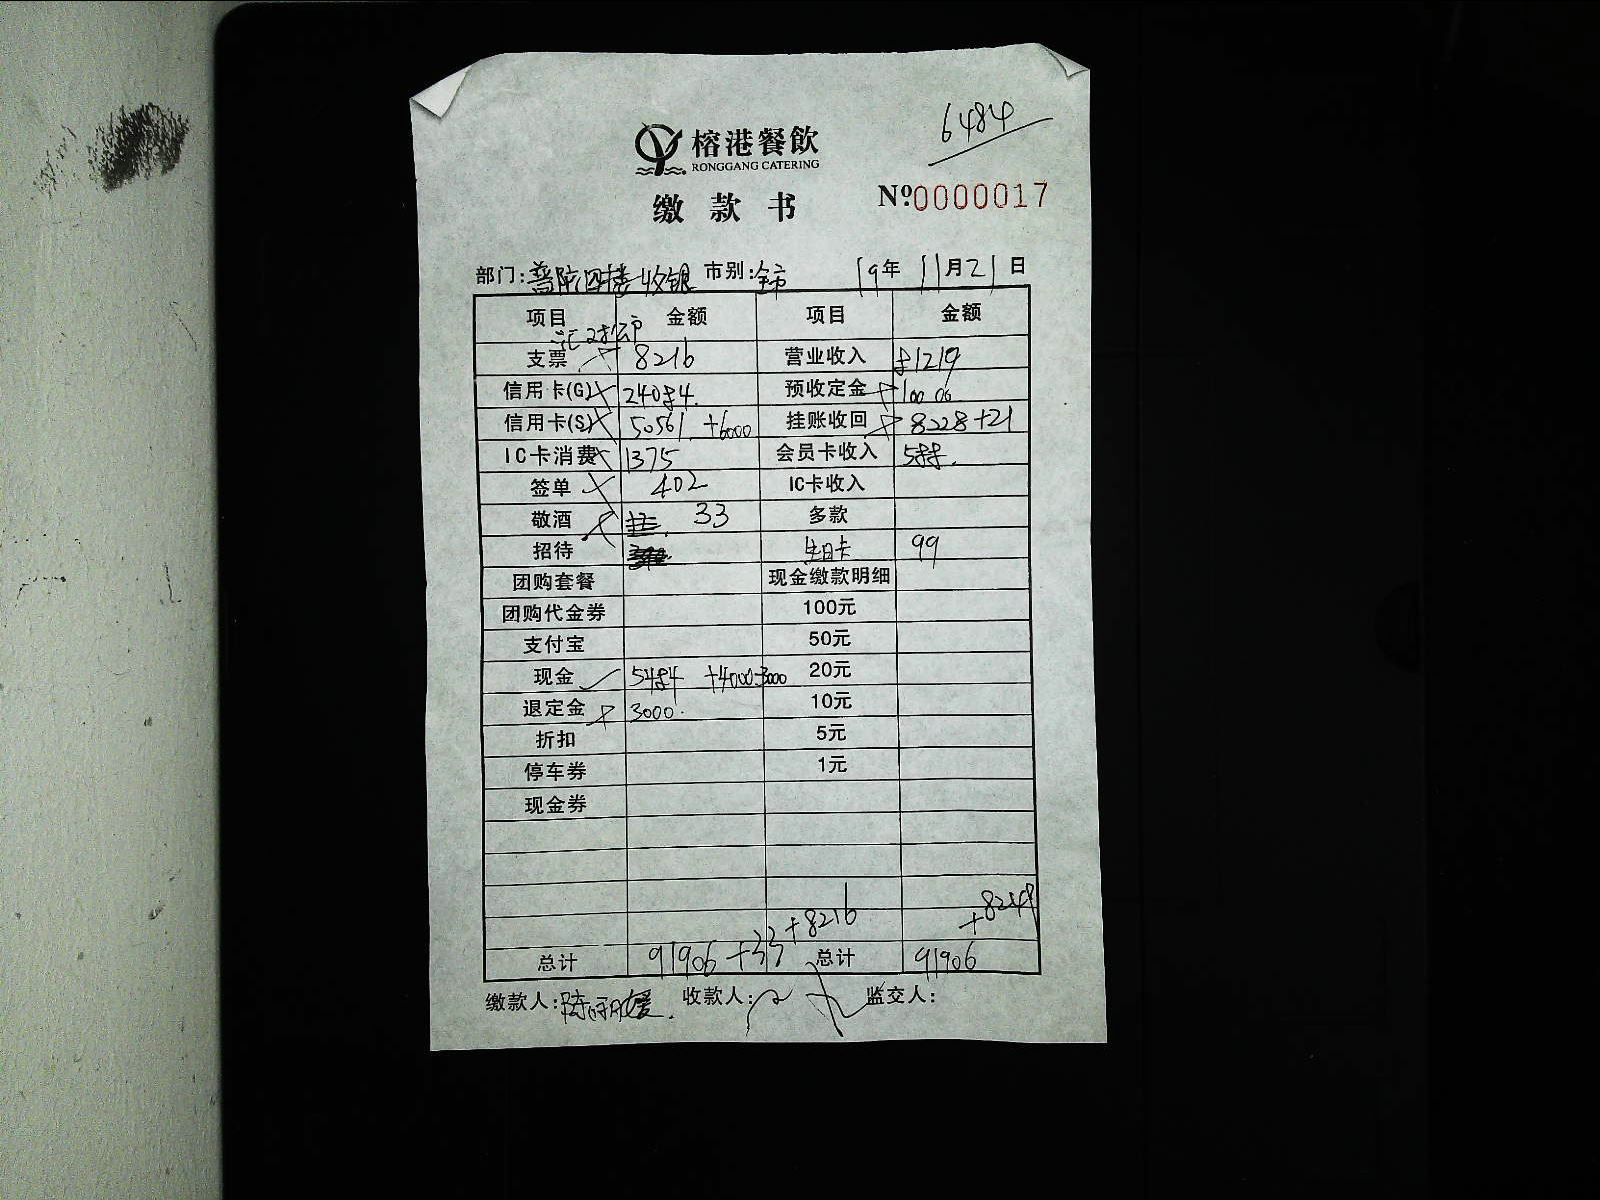 6484
榕港餐飲
RONGGANG CATERING
缴款书
№0000017
部门:普陀酒楼收银 市别:全市 19年11月21日
项目 金额 项目 金额
支票 8216 营业收入 81219
信用卡(G) 24084. 预收定金 10000
信用卡(S) 50561 +6000 挂账收回 8228+21
IC卡消费 1375 会员卡收入 588.
签单 402 IC卡收入
敬酒 33 多款
招待 生日卡 99
团购套餐 现金缴款明细
团购代金券 100元
支付宝 50元
现金 5484 +4000-3000 20元
退定金 3000. 10元
折扣 5元
停车券 1元
现金券
+8216 +8249
总计 91906 +33 总计 91906
缴款人: 收款人: 监交人: